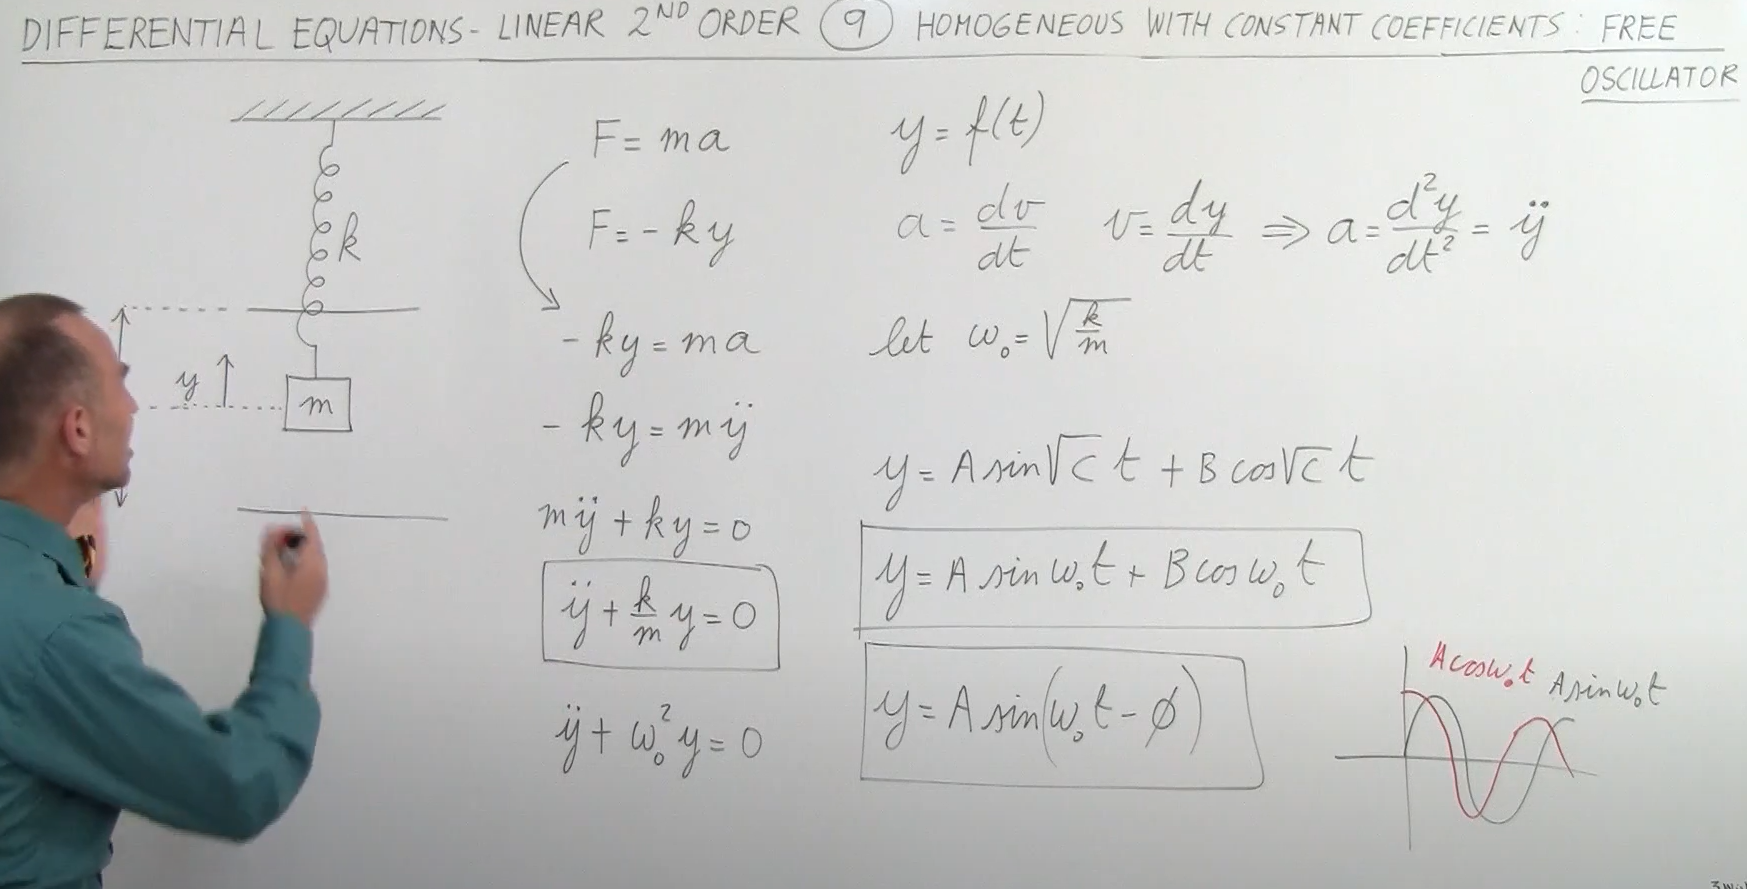 DIFFERENTIAL EQUATIONS - LINEAR 2ND ORDER 9 HOMOGENEOUS WITH CONSTANT COEFFICIENTS : FREE
OSCILLATOR
k
y
m
F = ma
F = - ky
- ky = ma
- ky = mÿ
mÿ + ky = 0
ÿ + k/m y = 0
ÿ + ω₀² y = 0
y = f(t)
a = dv/dt v = dy/dt ⇒ a = d²y/dt² = ÿ
let ω₀ = √(k/m)
y = A sin √C t + B cos √C t
y = A sin ω₀t + B cos ω₀t
y = A sin(ω₀t - ø)
A cos ω₀t A sin ω₀t